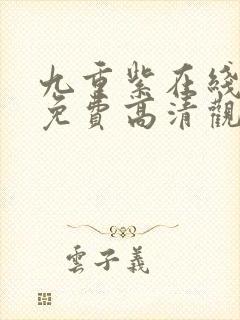 九重紫在綫
免費高清觀
雲子義